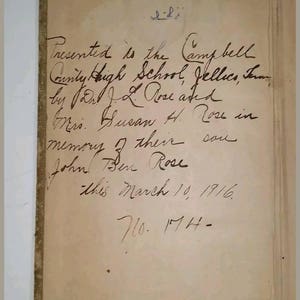 Presented to the Campbell
County High School, Jellico, Tenn,
by Dr. J L Rose and
Mrs. Susan H Rose in
memory of their son
John Ben Rose
this March 10, 1916.
No. 174-